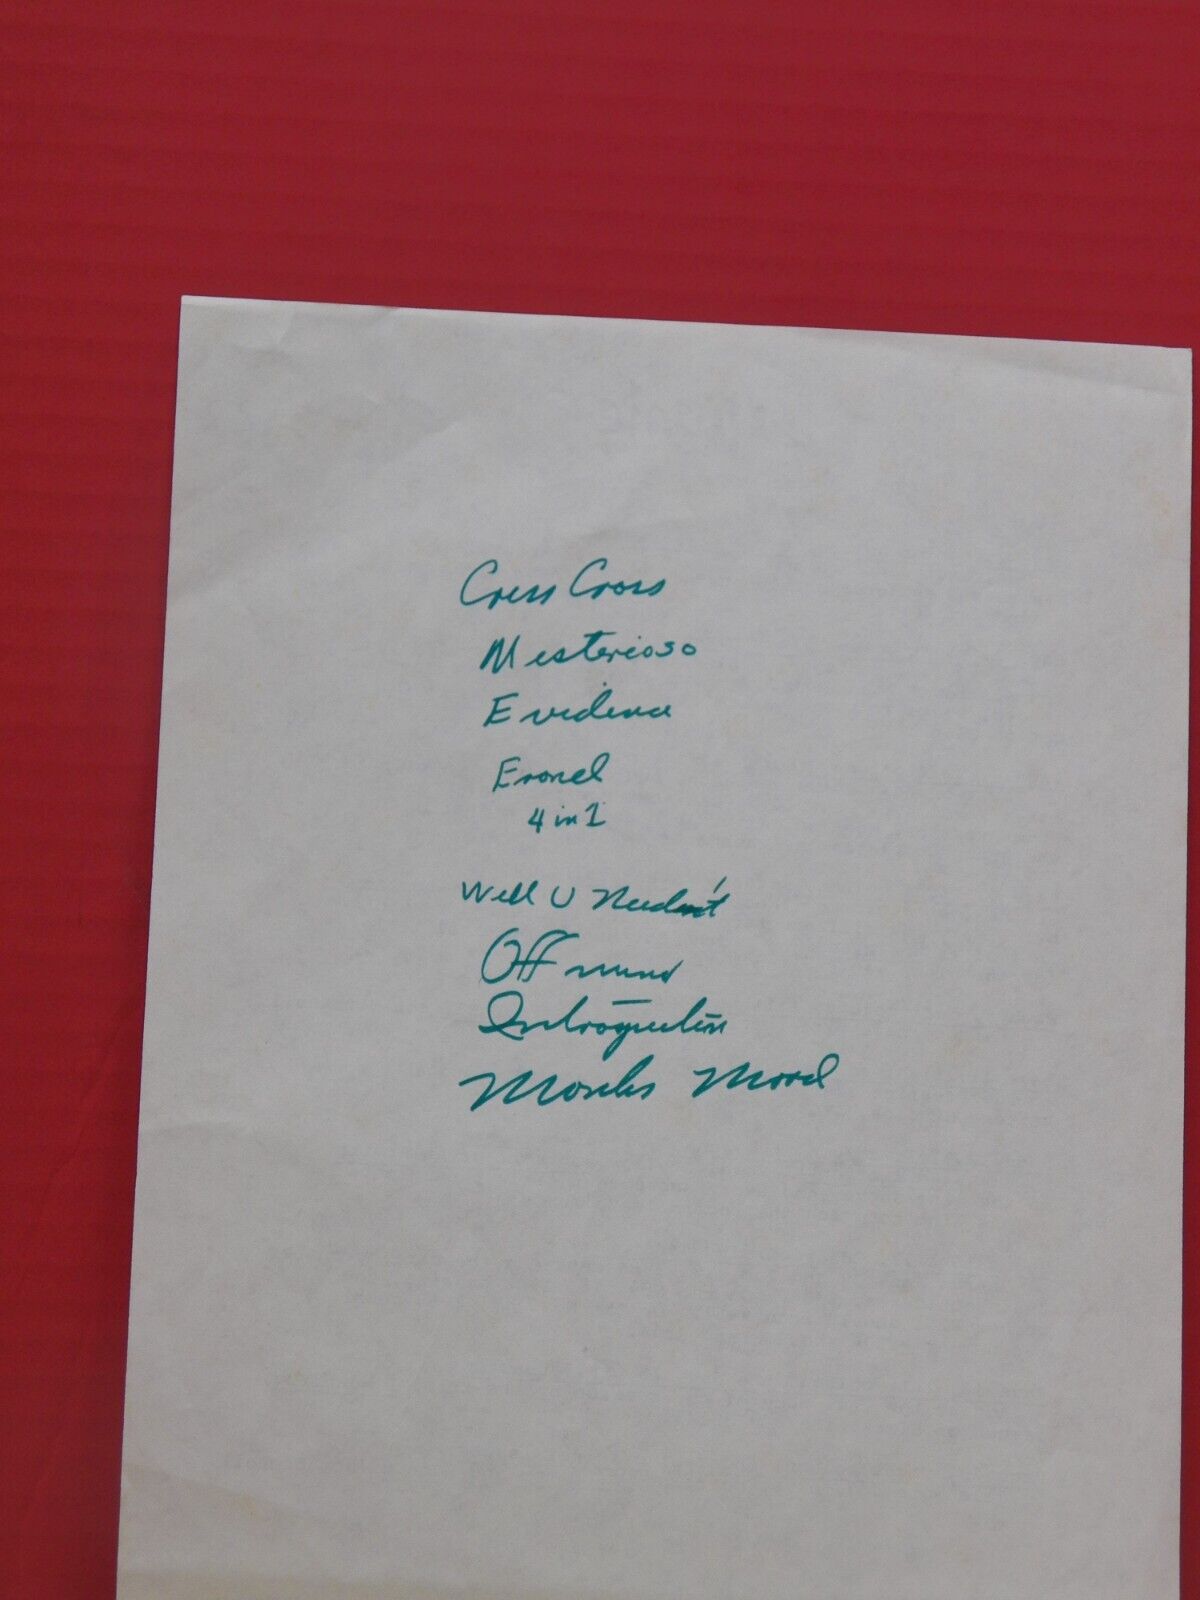 Criss Cross
Misterioso
Evidence
Eronel
4 in 1
Well U Needn't
Off minor
Introspection
Monks Mood